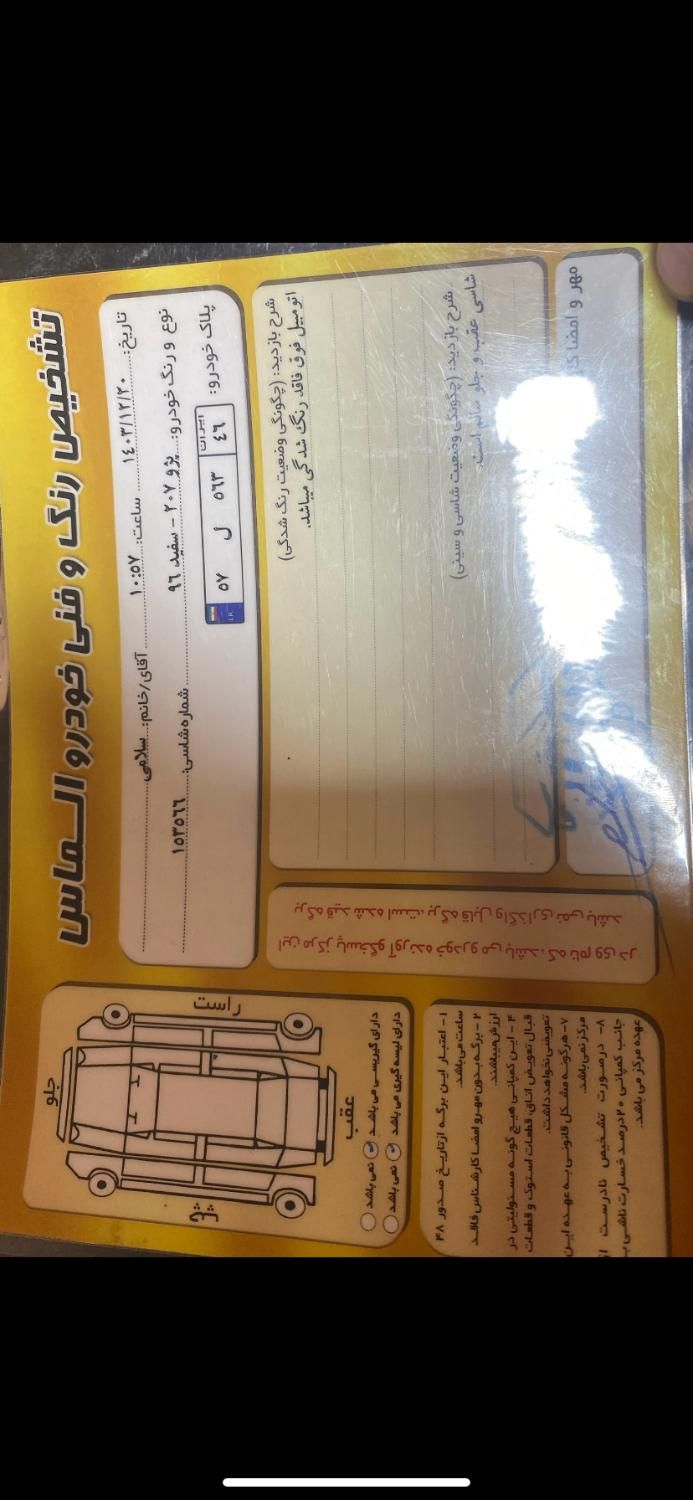 تشخیص رنگ و فنی خودرو الماس
تاریخ: ۱۴۰۳/۱۲/۲۰ ساعت: ۱۰:۵۷ آقای/خانم: سلامی
نوع و رنگ خودرو: پژو ۲۰۷ - سفید ۹۶ شماره شاسی: ۱۵۳۵۶۶
پلاک خودرو: ایران ۴۶ ۵۶۳ ل ۵۷
I.R.
شرح بازدید: (چگونگی وضعیت رنگ شدگی)
اتومبیل فوق فاقد رنگ شدگی میباشد.
شرح بازدید: (چگونگی وضعیت شاسی و سینی)
شاسی عقب و جلو سالم است.
مهر و امضا
این مرکز پاسخگو آورنده خودرو می باشد، که نام وی در
برگه قید شده است، برگه قابل واگذاری نمی باشد
جلو
راست
چپ
عقب
دارای گیربسی می باشد نمی باشد
دارای لیسه گیری می باشد نمی باشد
۱- اعتبار این برگه از تاریخ صدور ۴۸
ساعت می باشد.
۲- برگه بدون مهر و امضا کارشناس فاقد
ارزش میباشد.
۴- این کمپانی هیچ گونه مسئولیتی در
قبال تعویض اتاق، قطعات استوک و قطعات
تعویضی نخواهد داشت.
۷- هرگونه مشکل قانونی به عهده این
مرکز نمی باشد.
۸- درصورت تشخیص نادرست از
جانب کمپانی ۲۰ درصد خسارت ناشی به
عهده مرکز می باشد.